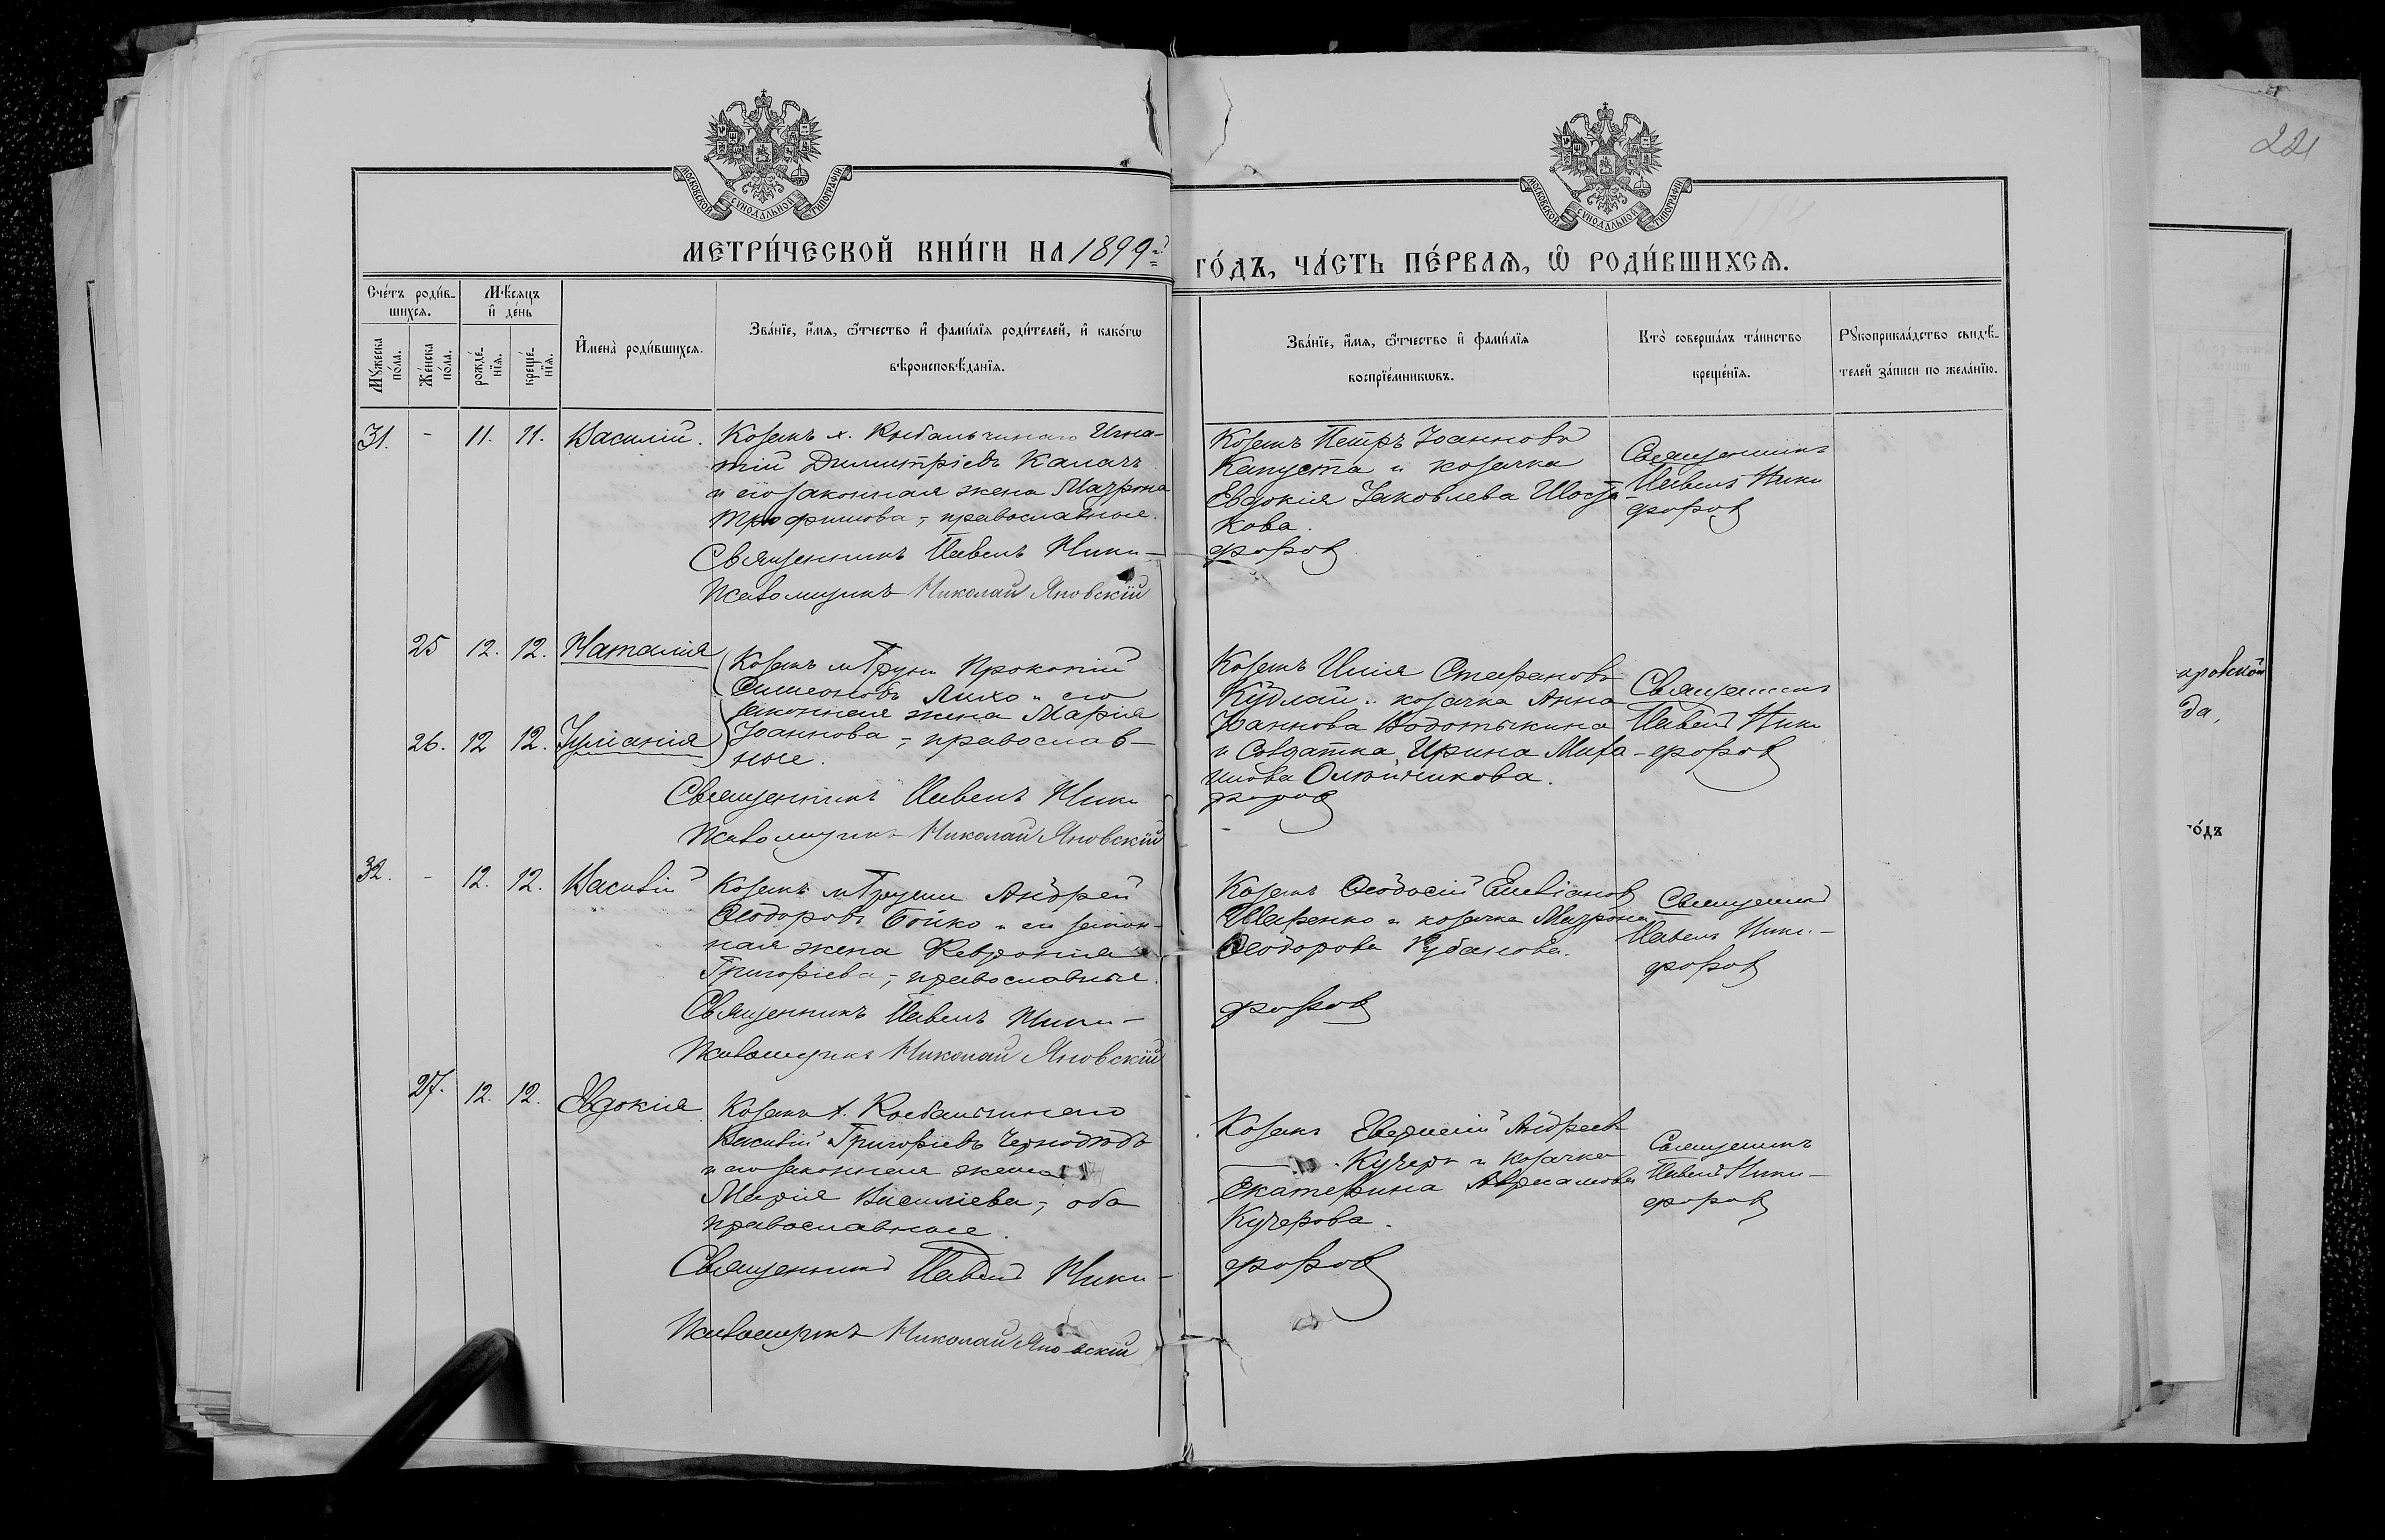 221
МОСКОВСКОЙ СѴНОДАЛЬНОЙ ТИПОГРАФІИ
МОСКОВСКОЙ СѴНОДАЛЬНОЙ ТИПОГРАФІИ
МЕТРИ́ЧЕСКОЙ КНИ́ГИ НА 1899й
ГО́ДЪ, ЧА́СТЬ ПЕ́РВАѦ, Ѽ РОДИ́ВШИХСѦ.
Сче́тъ роди́в-
шихсѧ.
Мꙋ́жеска по́ла.
Же́нска по́ла.
Мѣ́сѧцъ
и҆ де́нь
рожде́-
нїѧ.
креще́-
нїѧ.
И҆мена̀ роди́вшихсѧ.
Зва́нїе, и҆́мѧ, ѻ҆́тчество и҆ фами́лїѧ роди́телей, и҆ како́гѡ
вѣроисповѣ́данїѧ.
Зва́нїе, и҆́мѧ, ѻ҆́тчество и҆ фами́лїѧ
воспрїе́мникѡвъ.
Кто̀ соверша́лъ та́инство
креще́нїѧ.
Рꙋкоприкла́дство свидѣ́-
телей за́писи по жела́нїю.
31. - 11. 11. Василій.
Козакъ х. Кибальчинаго Игна-
тій Димитріевъ Калачъ
и его законная жена Матрона
Трофимова, православные.
Священникъ Павелъ Ники-
Псаломщикъ Николай Яновскій
Козакъ Петръ Іоанновъ
Капуста и козачка
Евдокія Іаковлева Шоста-
кова.
форовъ
Священникъ
Павелъ Ники
форовъ
25 12. 12. Наталія
26. 12 12. Іуліанія
Козакъ м Груни Прокопій
Симеоновъ Лихо и его
законная жена Марія
Іоаннова, православ-
ные.
Священникъ Павелъ Ники
Псаломщикъ Николай Яновскій
Козакъ Илія Стефановъ
Кудлай и козачка Анна
Іоаннова Водотыкина
и Солдатка Ирина Миха-
илова
форовъ
Священникъ
Павелъ Ники
форовъ
32. - 12. 12. Василій
Козакъ м Груни Андрей
Ѳеодоровъ Бойко и его закон-
ная жена Февронія
Григоріева, православные.
Священникъ Павелъ Ники-
Псаломщикъ Николай Яновскій
Козакъ Ѳеодосій
и козачка Матрона
Ѳеодорова Рубанова.
форовъ
Священникъ
Павелъ Ники-
форовъ
27. 12. 12. Евдокія
Козакъ х. Кибальчинаго
Василій Григоріевъ Чернодѣдъ
и его законная жена
Марія Василіева, оба
православные.
Священникъ Павелъ Ники-
Псаломщикъ Николай Яновскій
Козакъ Евфимій Андреевъ
Кучеръ и козачка
Екатерина Авраамова
Кучерова.
форовъ
Священникъ
Павелъ Ники-
форовъ
да,
го́дъ